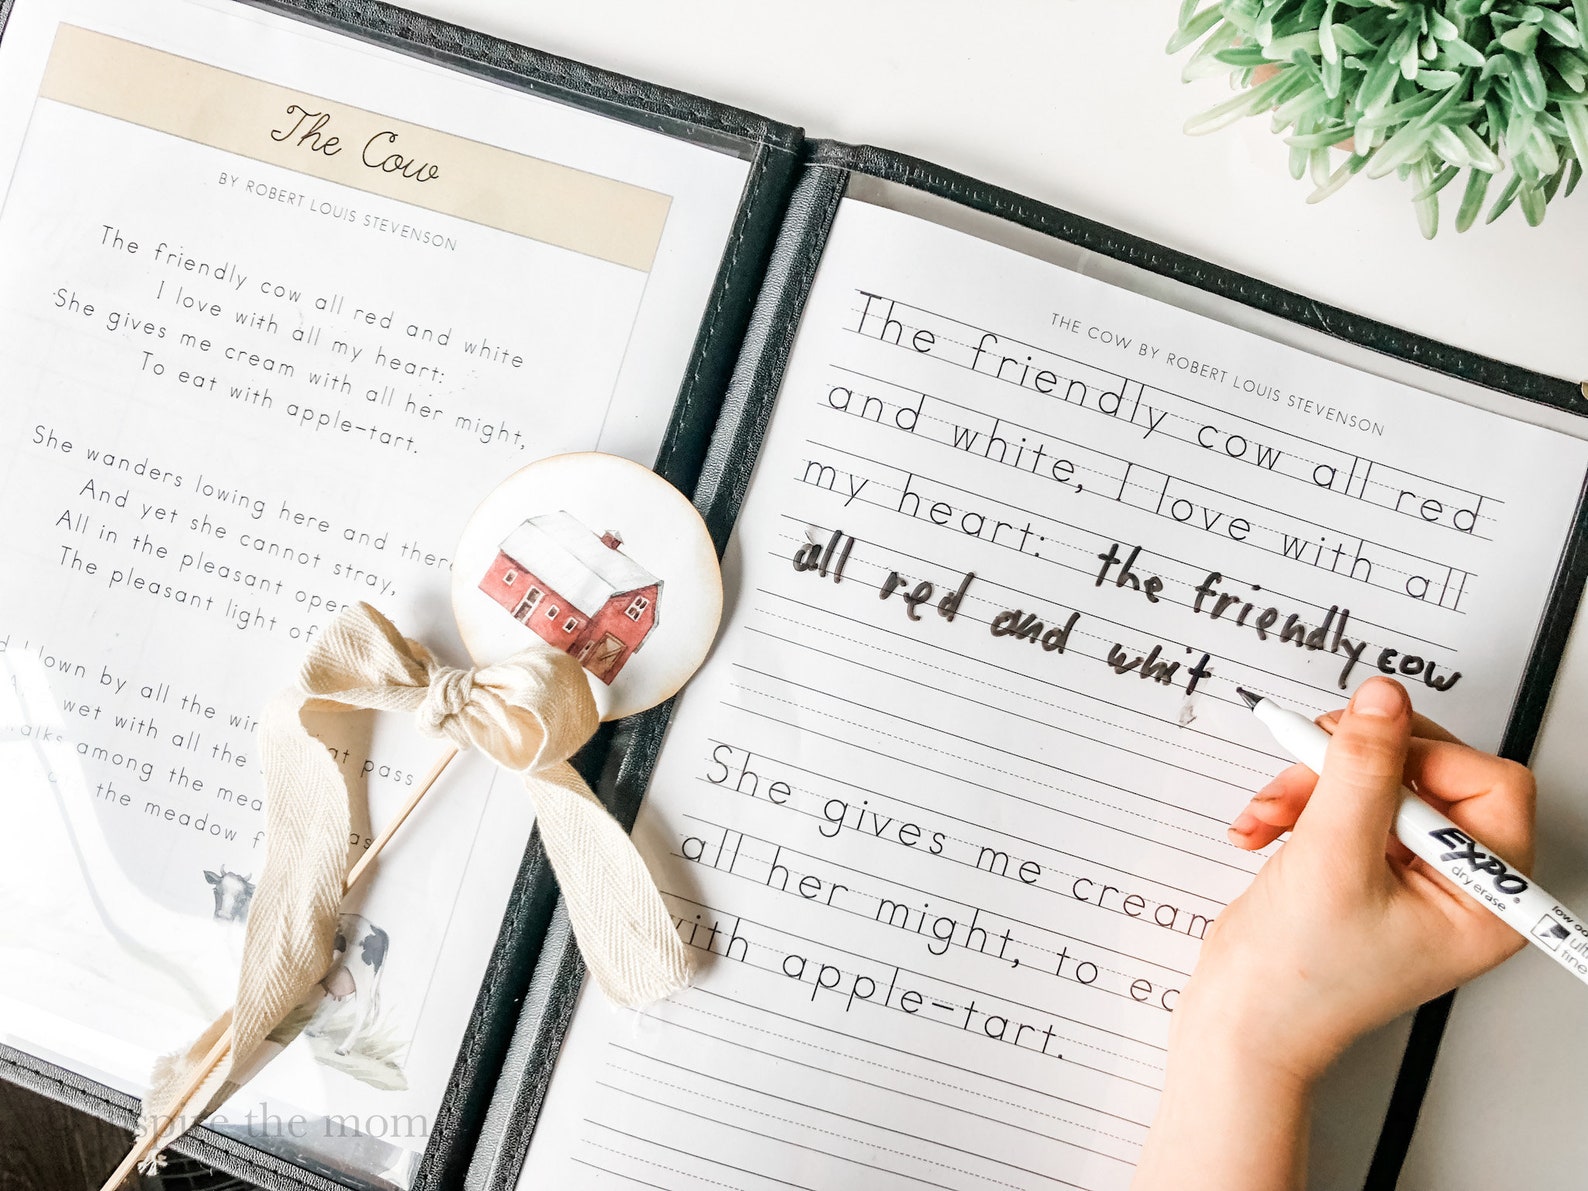 The Cow
BY ROBERT LOUIS STEVENSON
The friendly cow all red and white
I love with all my heart:
She gives me cream with all her might,
To eat with apple-tart.
She wanders lowing here and there
And yet she cannot stray,
All in the pleasant open
The pleasant light of
lown by all the win
wet with all the
pass
walks among the mea
the meadow f
THE COW BY ROBERT LOUIS STEVENSON
The friendly cow all red
and white, I love with all
my heart: the friendly cow
all red and whit
She gives me cream
all her might, to ea
with apple-tart.
EXPO
dry erase
low od
ultr
fine
spire the mom